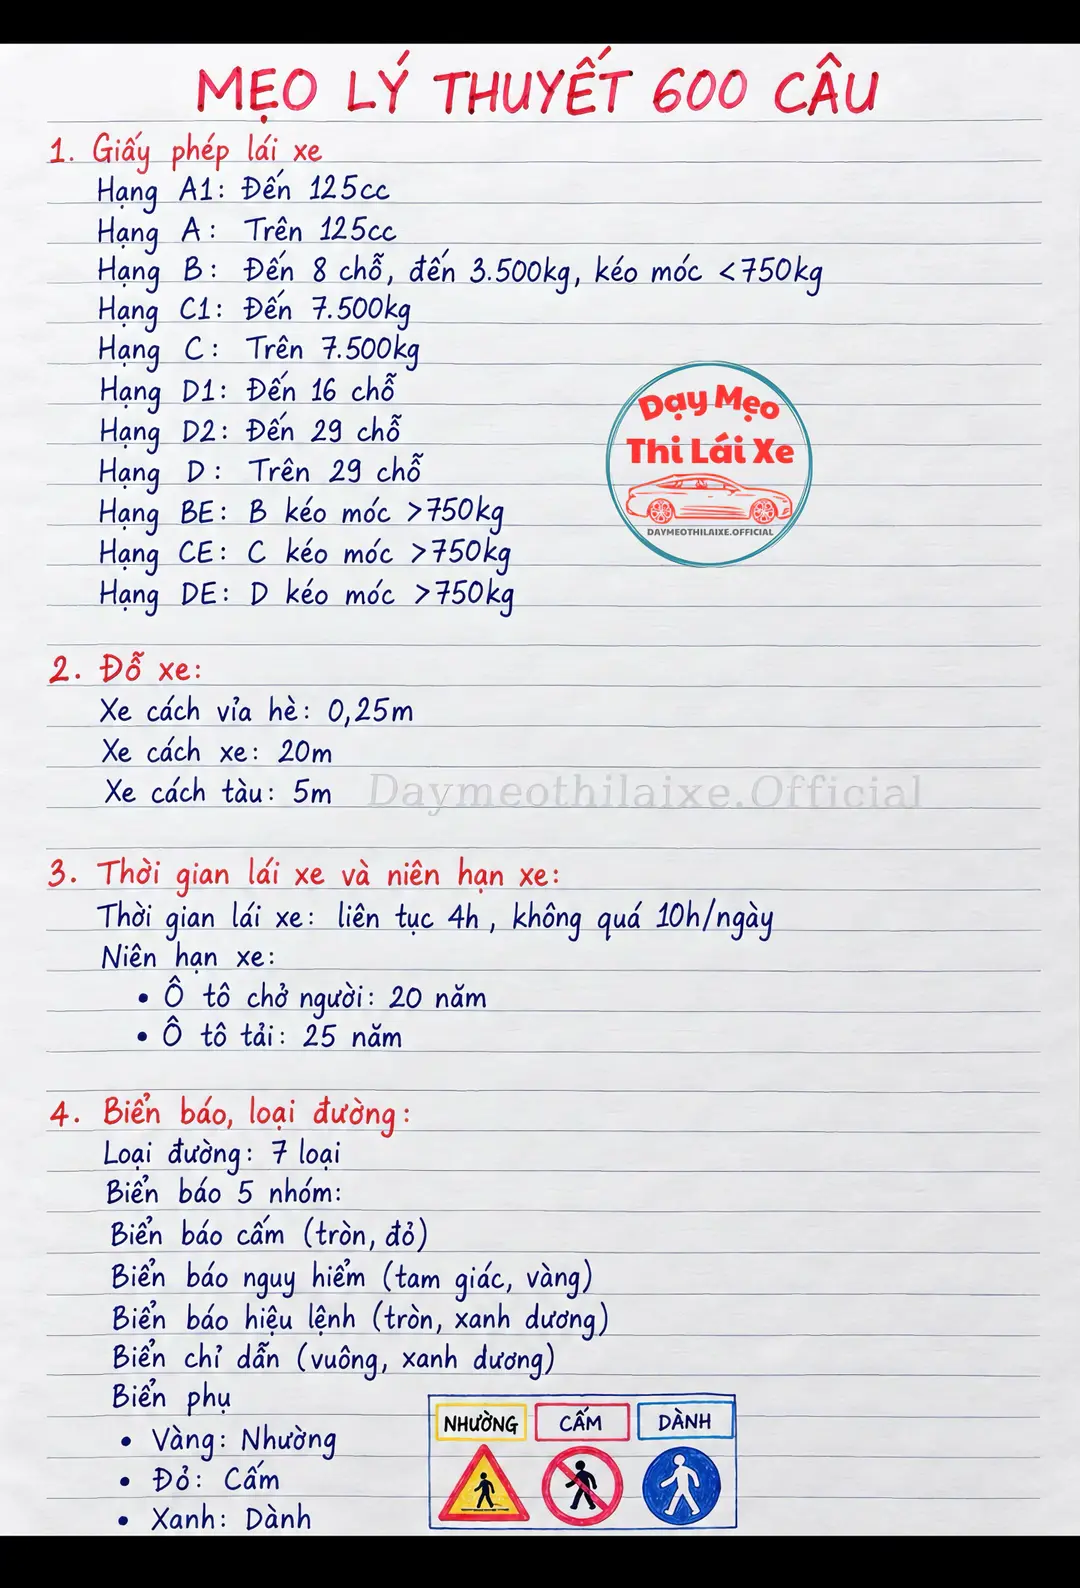 MẸO LÝ THUYẾT 600 CÂU
1. Giấy phép lái xe
Hạng A1: Đến 125cc
Hạng A: Trên 125cc
Hạng B: Đến 8 chỗ, đến 3.500kg, kéo móc <750kg
Hạng C1: Đến 7.500kg
Hạng C: Trên 7.500kg
Hạng D1: Đến 16 chỗ
Hạng D2: Đến 29 chỗ
Hạng D: Trên 29 chỗ
Hạng BE: B kéo móc >750kg
Hạng CE: C kéo móc >750kg
Hạng DE: D kéo móc >750kg
Dạy Mẹo
Thi Lái Xe
DAYMEOTHILAIXE.OFFICIAL
2. Đỗ xe:
Xe cách vỉa hè: 0,25m
Xe cách xe: 20m
Xe cách tàu: 5m
Daymeothilaixe.Official
3. Thời gian lái xe và niên hạn xe:
Thời gian lái xe: liên tục 4h, không quá 10h/ngày
Niên hạn xe:
• Ô tô chở người: 20 năm
• Ô tô tải: 25 năm
4. Biển báo, loại đường:
Loại đường: 7 loại
Biển báo 5 nhóm:
Biển báo cấm (tròn, đỏ)
Biển báo nguy hiểm (tam giác, vàng)
Biển báo hiệu lệnh (tròn, xanh dương)
Biển chỉ dẫn (vuông, xanh dương)
Biển phụ
• Vàng: Nhường
• Đỏ: Cấm
• Xanh: Dành
NHƯỜNG
CẤM
DÀNH